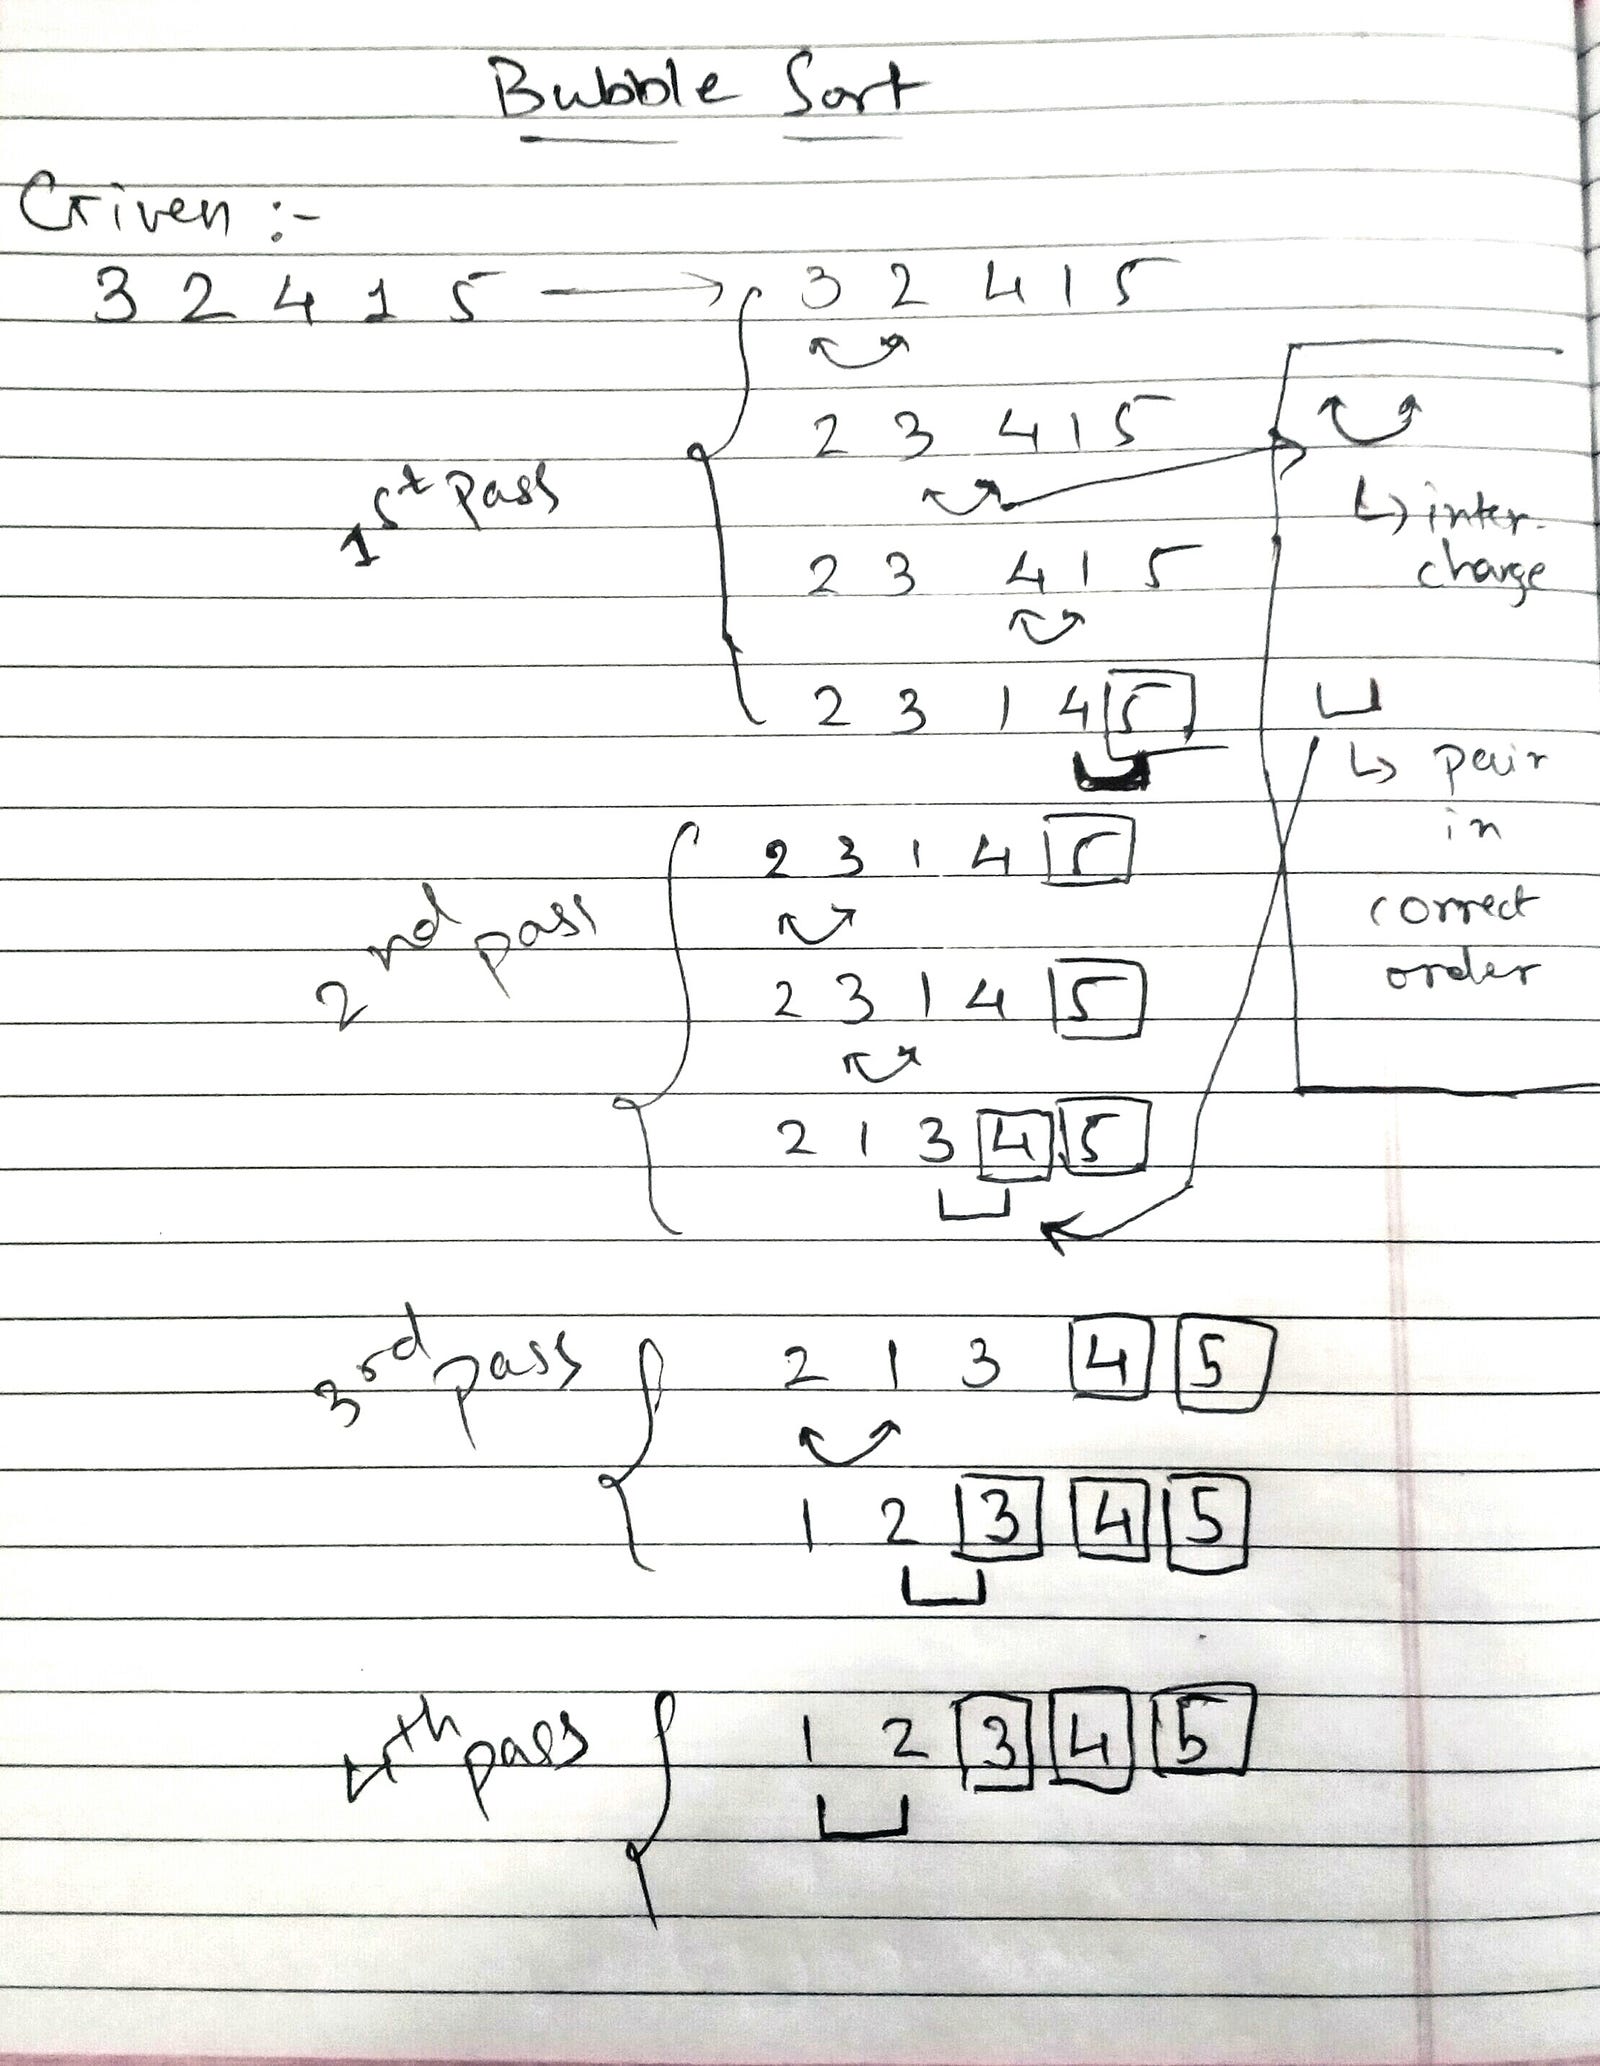 Bubble Sort
Given :-
3 2 4 1 5 → 3 2 4 1 5
2 3 4 1 5
1st pass
2 3 4 1 5
2 3 1 4 5
↳ inter-
charge
↳ pair
in
correct
order
2nd pass
2 3 1 4 5
2 3 1 4 5
2 1 3 4 5
3rd pass
2 1 3 4 5
1 2 3 4 5
4th pass
1 2 3 4 5